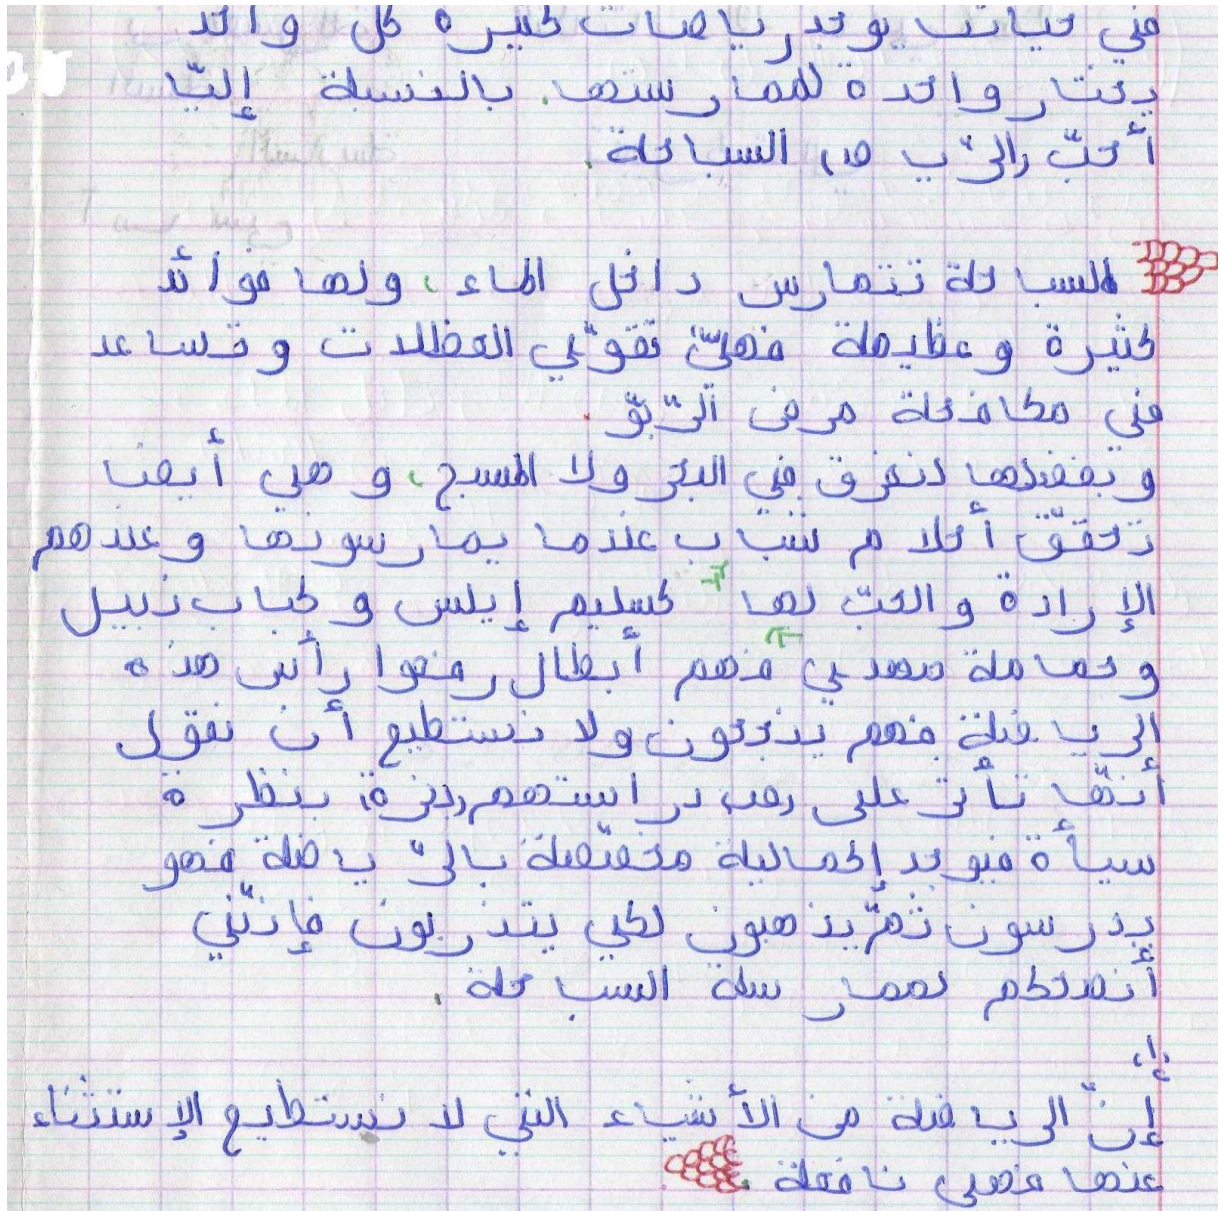 في حياتنا يوجد رياضات كثيرة كل واحد
يختار واحدة للممارستها. بالنسبة إليّا
أحبّ السباحة.
السباحة تتمارس داخل الماء، ولها فوائد
كثيرة وعظيمة فهيّ تقوّي العظلات وتساعد
في مكافحة مرض الرّبوّ.
وبفضلها لا نغرق في البحر ولا المسبح، و هي أيضا
تحقّق أحلام شباب عندما يمارسونها وعندهم
الإرادة والحبّ لها كسليم إيلس و كباب نبيل
وحمامة مهدي فهم أبطال رفعوا رأس هذه
الرياضة فهم ينجحون ولا نستطيع أن نقول
أنّها تأثر على دراستهم بنظرة
سيأة فيوجد إكمالية مخصّصة بالرّياضة فهو
يدرسون ثمّ يذهبون لكي يتدربون فإنّني
أنصحكم لممارسة السباحة.
إنّ الرياضة من الأشياء التي لا نستطيع الإستثناء
عنها فهي نافعة.